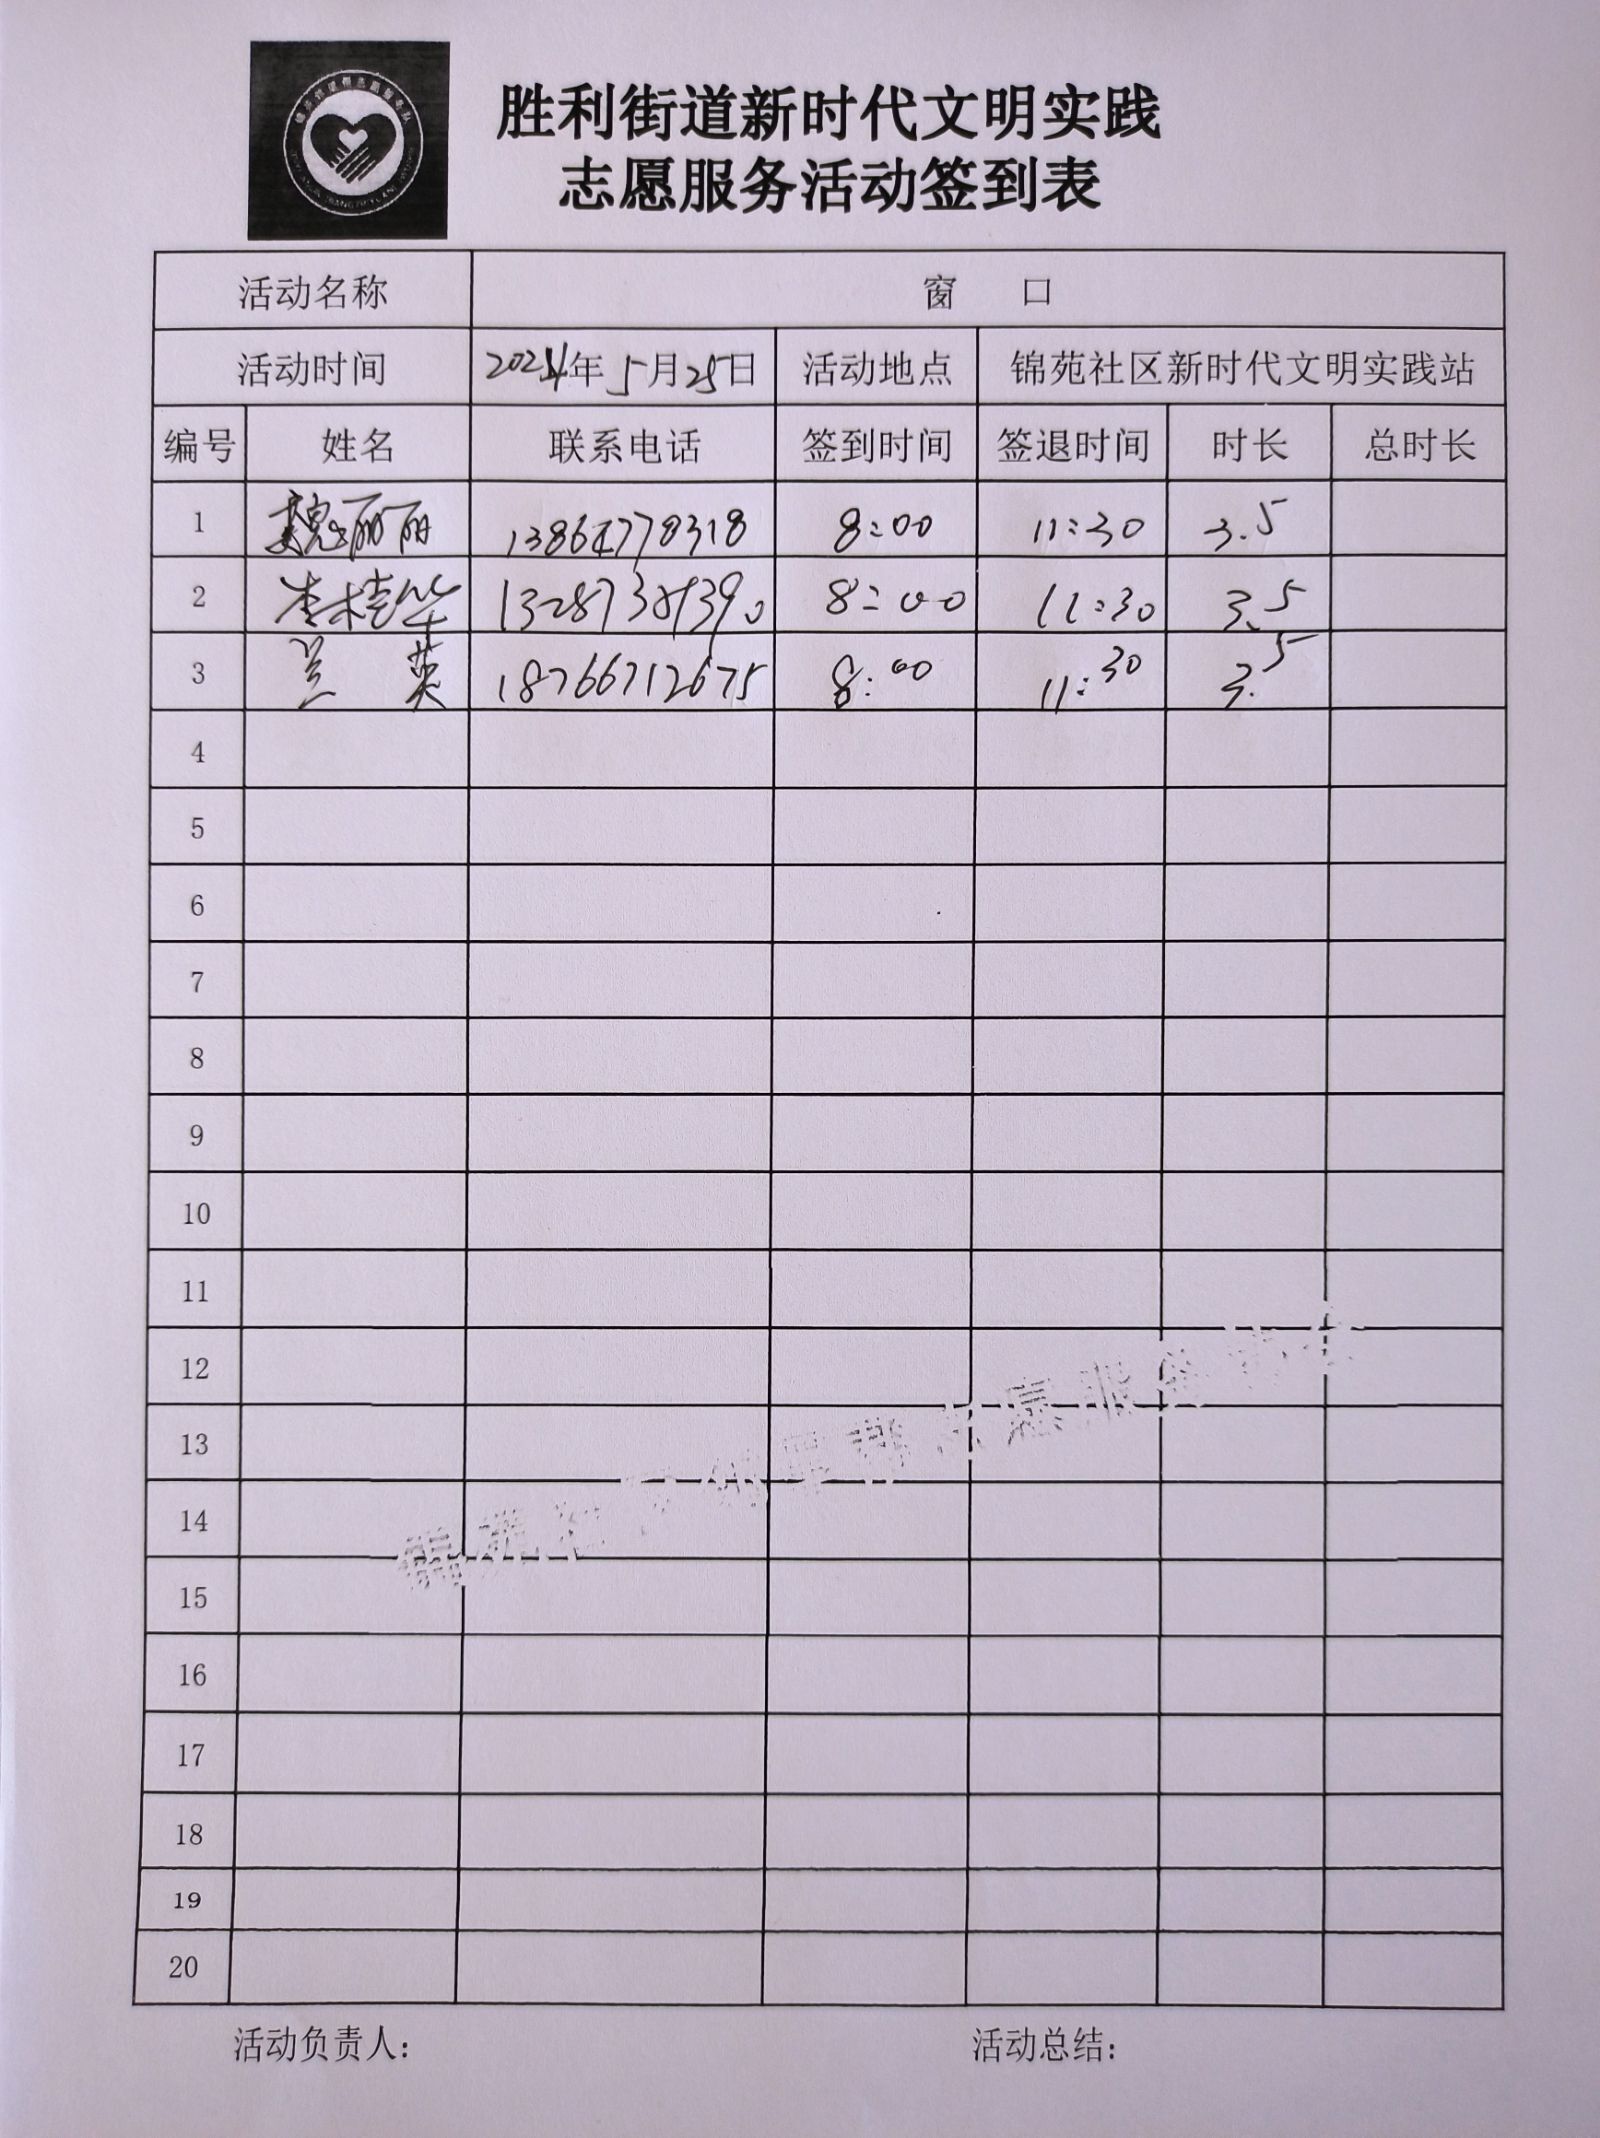 胜利街道新时代文明实践
志愿服务活动签到表
活动名称 窗 口
活动时间 2024年5月25日 活动地点 锦苑社区新时代文明实践站
编号 姓名 联系电话 签到时间 签退时间 时长 总时长
1 魏丽丽 13864778318 8:00 11:30 3.5
2 李桂华 8:00 11:30 3.5
3 兰英 18766712675 8:00 11:30 3.5
4
5
6
7
8
9
10
11
12
13
14
15
16
17
18
19
20
活动负责人: 活动总结: